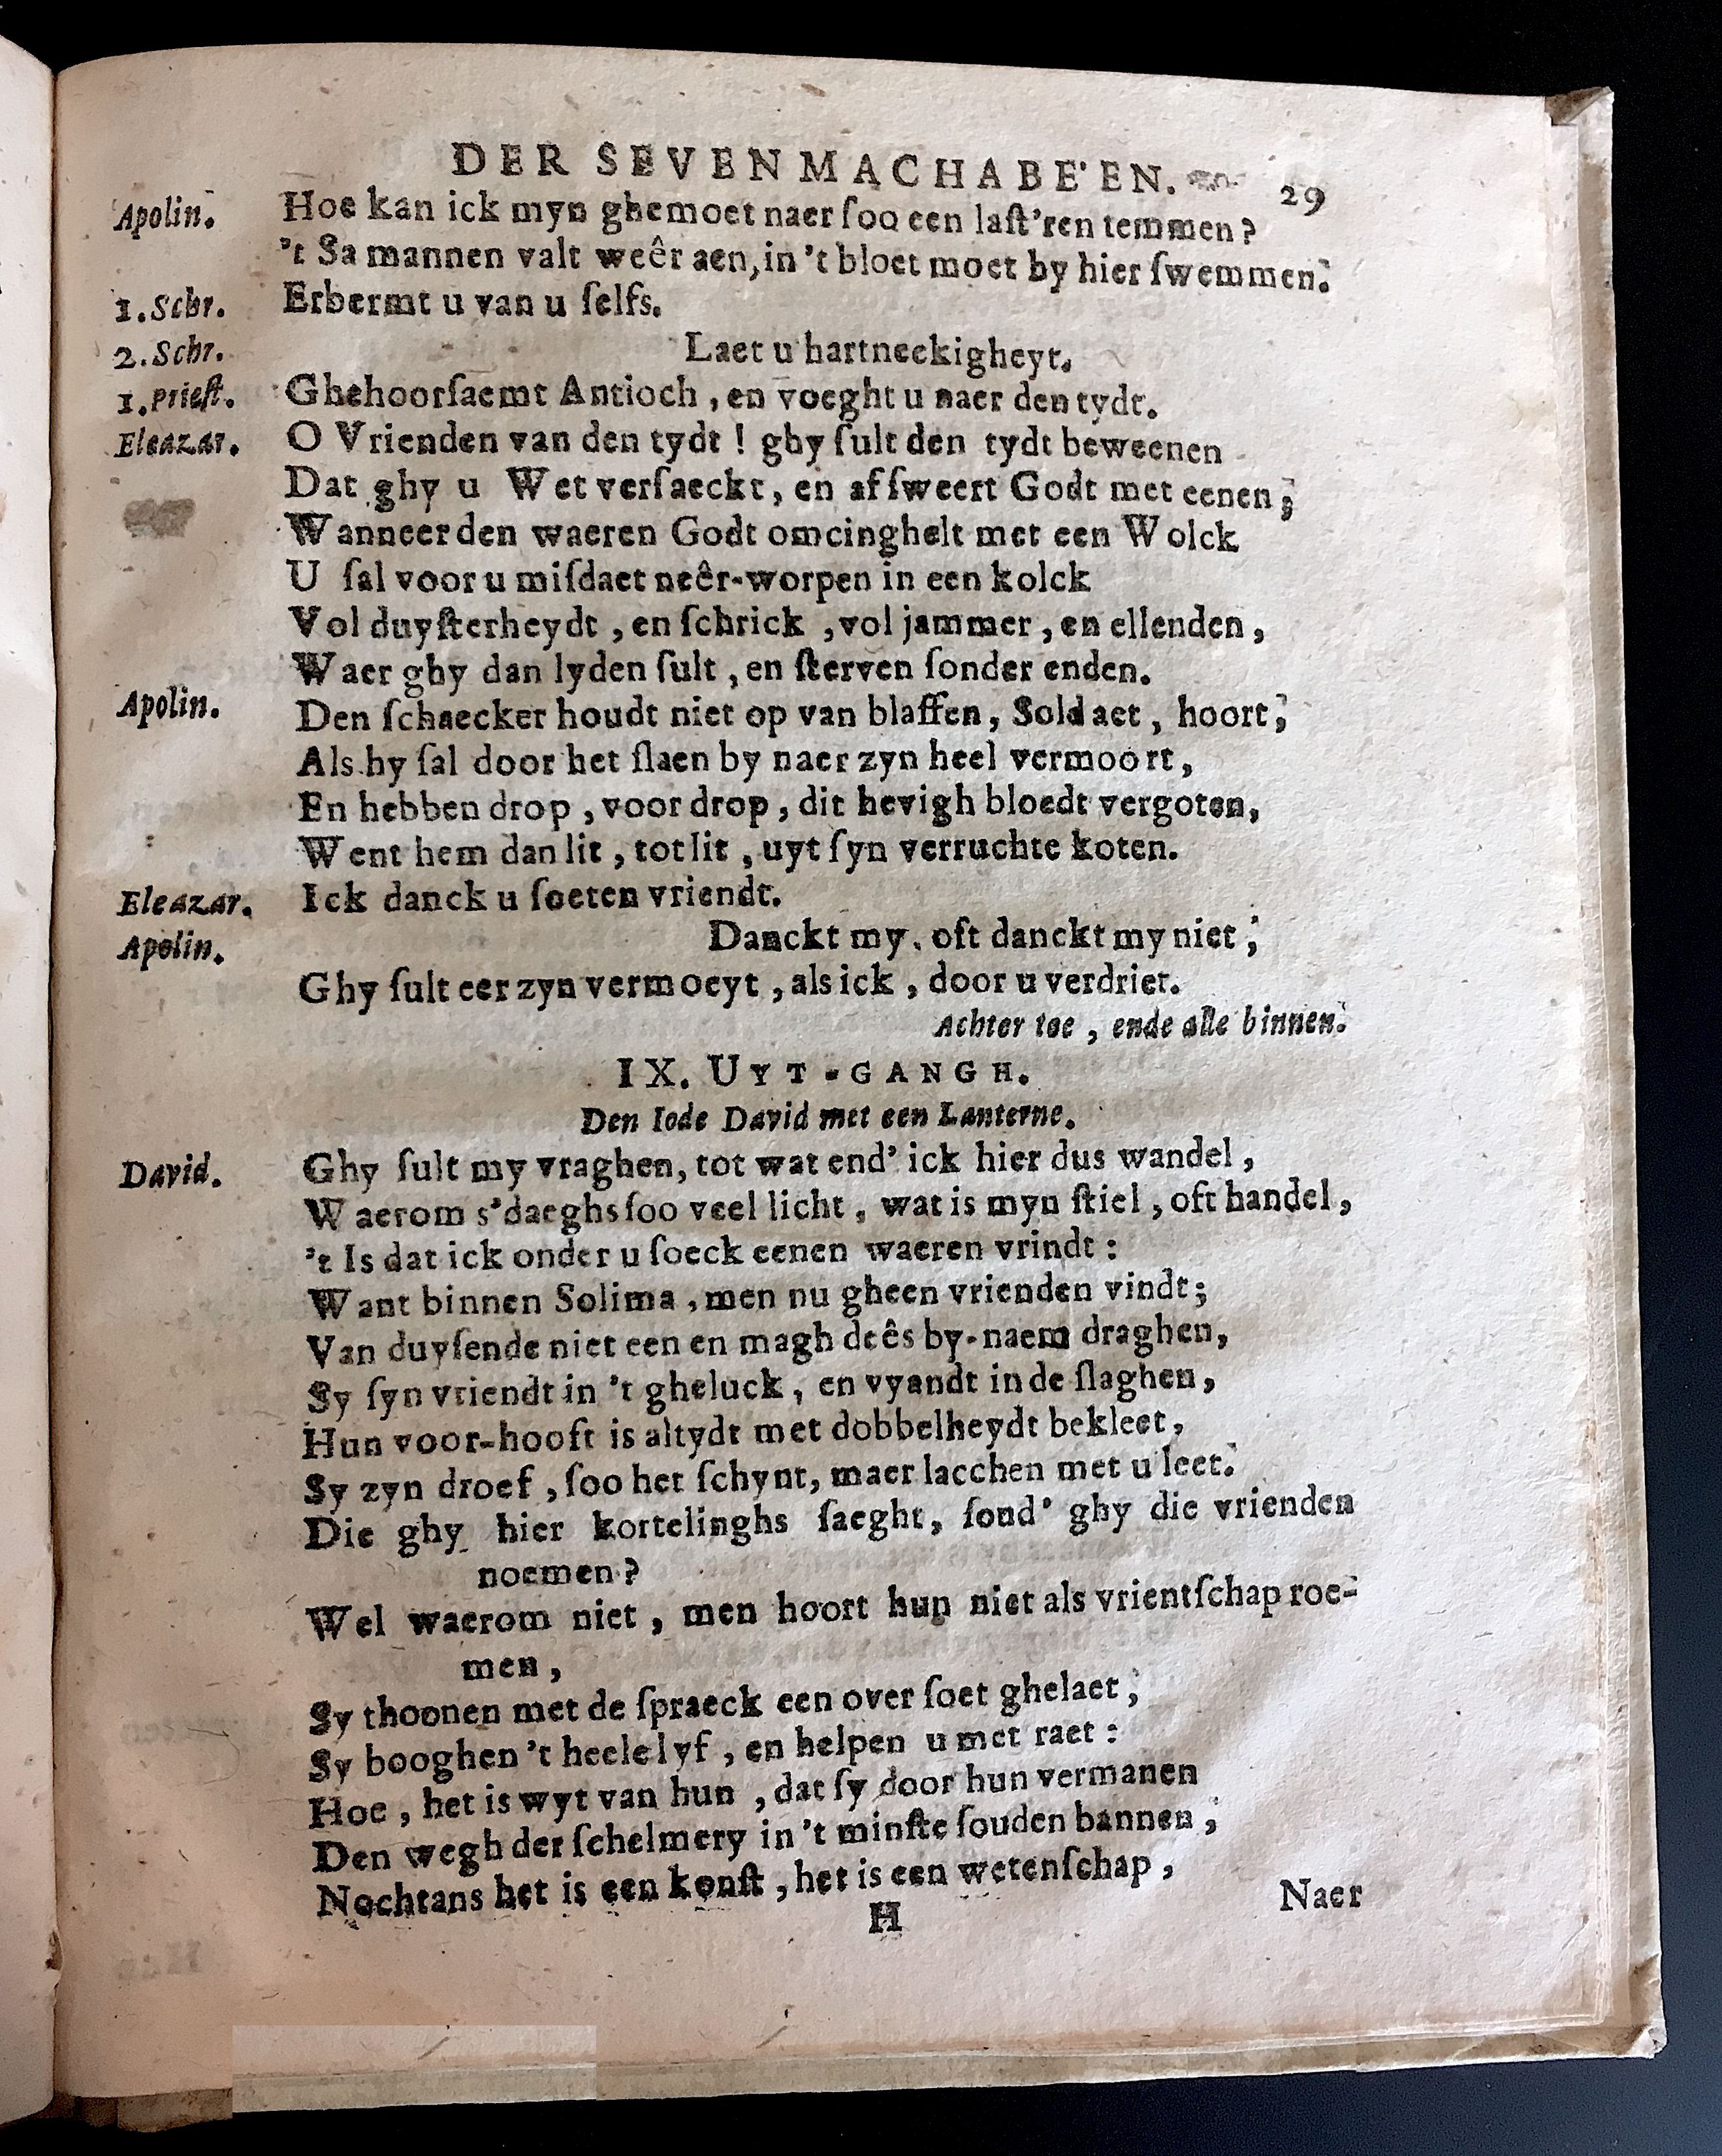 DER SEVEN MACHABE'EN. 29
Apolin. Hoe kan ick myn ghemoet naer ſoo een laſt'ren temmen?
't Sa mannen valt weêr aen, in 't bloet moet hy hier ſwemmen.
1. Schr. Erbermt u van u ſelfs.
2. Schr. Laet u hartneckigheyt.
1. Prieſt. Ghehoorſaemt Antioch, en voeght u naer den tydt.
Eleazar. O Vrienden van den tydt! ghy ſult den tydt beweenen
Dat ghy u Wet verſaeckt, en afſweert Godt met eenen;
Wanneer den waeren Godt omcinghelt met een Wolck
U ſal voor u miſdaet neêr-worpen in een kolck
Vol duyſterheydt, en ſchrick, vol jammer, en ellenden,
Waer ghy dan lyden ſult, en ſterven ſonder enden.
Apolin. Den ſchaecker houdt niet op van blaffen, Soldaet, hoort;
Als hy ſal door het ſlaen by naer zyn heel vermoort,
En hebben drop, voor drop, dit hevigh bloedt vergoten,
Went hem dan lit, tot lit, uyt ſyn verruchte koten.
Eleazar. Ick danck u ſoeten vriendt.
Apolin. Danckt my, oft danckt my niet;
Ghy ſult eer zyn vermoeyt, als ick, door u verdriet.
Achter toe, ende alle binnen.
IX. UYT-GANGH.
Den Iode David met een Lanterne.
David. Ghy ſult my vraghen, tot wat end' ick hier dus wandel,
Waerom s'daeghs ſoo veel licht, wat is myn ſtiel, oft handel,
't Is dat ick onder u ſoeck eenen waeren vrindt:
Want binnen Solima, men nu gheen vrienden vindt;
Van duyſende niet een en magh deês by-naem draghen,
Sy ſyn vriendt in 't gheluck, en vyandt in de ſlaghen,
Hun voor-hooft is altydt met dobbelheydt bekleet,
Sy zyn droef, ſoo het ſchynt, maer lacchen met u leet.
Die ghy hier kortelinghs ſaeght, ſond' ghy die vrienden
noemen?
Wel waerom niet, men hoort hun niet als vrientſchap roe-
men,
Sy thoonen met de ſpraeck een over ſoet ghelaet;
Sy booghen 't heele lyf, en helpen u met raet:
Hoe, het is wyt van hun, dat ſy door hun vermanen
Den wegh der ſchelmery in 't minſte ſouden bannen;
Nochtans het is een konſt, het is een wetenſchap,
H Naer